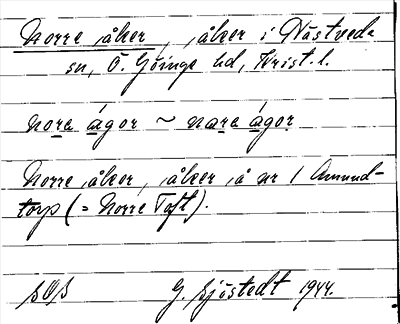 Norre åker, åker i Nästveda
sn, Ö. Göinge hd, Krist. l.
nora ágor ~ nara ágor
Norre åker, åker å nr 1 Amund-
torp (= Norre Toft).
G. Sjöstedt 1944.